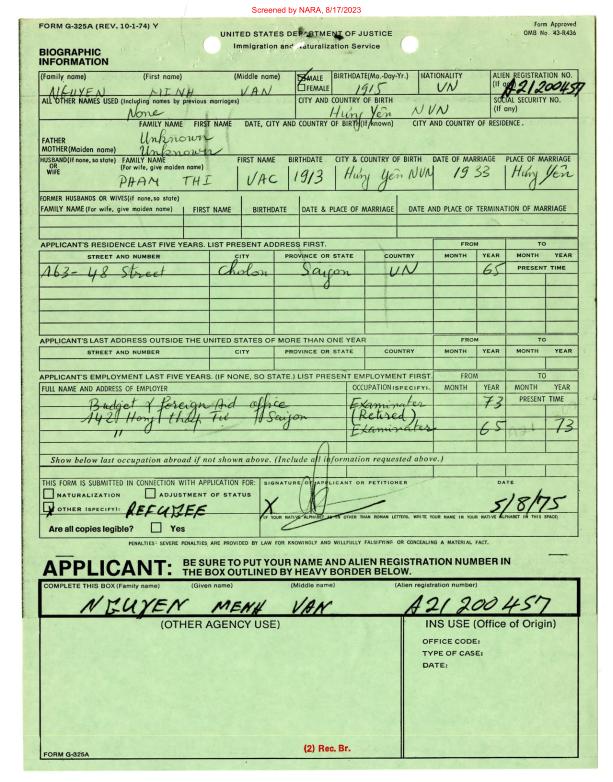 Screened by NARA, 8/17/2023
FORM G-325A (REV. 10-1-74) Y
Form Approved
OMB No. 43-R436
UNITED STATES DEPARTMENT OF JUSTICE
Immigration and Naturalization Service
BIOGRAPHIC
INFORMATION
(Family name) (First name) (Middle name) MALE FEMALE BIRTHDATE(Mo.-Day-Yr.) NATIONALITY ALIEN REGISTRATION NO. (If any)
NGUYEN MINH VAN 1915 VN A21200457
ALL OTHER NAMES USED (Including names by previous marriages) CITY AND COUNTRY OF BIRTH SOCIAL SECURITY NO. (If any)
None Hưng Yên NVN
FAMILY NAME FIRST NAME DATE, CITY AND COUNTRY OF BIRTH(If known) CITY AND COUNTRY OF RESIDENCE.
FATHER Unknown
MOTHER(Maiden name) Unknown
HUSBAND(If none, so state) OR WIFE FAMILY NAME (For wife, give maiden name) FIRST NAME BIRTHDATE CITY & COUNTRY OF BIRTH DATE OF MARRIAGE PLACE OF MARRIAGE
PHAM THI VAC 1913 Hưng Yên NVN 1933 Hưng Yên
FORMER HUSBANDS OR WIVES(if none, so state)
FAMILY NAME (For wife, give maiden name) FIRST NAME BIRTHDATE DATE & PLACE OF MARRIAGE DATE AND PLACE OF TERMINATION OF MARRIAGE
APPLICANT'S RESIDENCE LAST FIVE YEARS. LIST PRESENT ADDRESS FIRST. FROM TO
STREET AND NUMBER CITY PROVINCE OR STATE COUNTRY MONTH YEAR MONTH YEAR
A63- 48 Street Cholon Saigon VN 65 PRESENT TIME
APPLICANT'S LAST ADDRESS OUTSIDE THE UNITED STATES OF MORE THAN ONE YEAR FROM TO
STREET AND NUMBER CITY PROVINCE OR STATE COUNTRY MONTH YEAR MONTH YEAR
APPLICANT'S EMPLOYMENT LAST FIVE YEARS. (IF NONE, SO STATE.) LIST PRESENT EMPLOYMENT FIRST. FROM TO
FULL NAME AND ADDRESS OF EMPLOYER OCCUPATION(SPECIFY). MONTH YEAR MONTH YEAR
Budget & Foreign Aid office Examinater 73 PRESENT TIME
Saigon (Retired)
" Examinater 65 73
Show below last occupation abroad if not shown above. (Include all information requested above.)
THIS FORM IS SUBMITTED IN CONNECTION WITH APPLICATION FOR: SIGNATURE OF APPLICANT OR PETITIONER DATE
NATURALIZATION ADJUSTMENT OF STATUS
X OTHER (SPECIFY): REFUGEE X 5/8/75
IF YOUR NATIVE ALPHABET IS IN OTHER THAN ROMAN LETTERS, WRITE YOUR NAME IN YOUR NATIVE ALPHABET IN THIS SPACE)
Are all copies legible? Yes
PENALTIES: SEVERE PENALTIES ARE PROVIDED BY LAW FOR KNOWINGLY AND WILLFULLY FALSIFYING OR CONCEALING A MATERIAL FACT.
APPLICANT: BE SURE TO PUT YOUR NAME AND ALIEN REGISTRATION NUMBER IN
THE BOX OUTLINED BY HEAVY BORDER BELOW.
COMPLETE THIS BOX (Family name) (Given name) (Middle name) (Alien registration number)
NGUYEN MENH VAN A21 200 457
(OTHER AGENCY USE) INS USE (Office of Origin)
OFFICE CODE:
TYPE OF CASE:
DATE:
FORM G-325A
(2) Rec. Br.